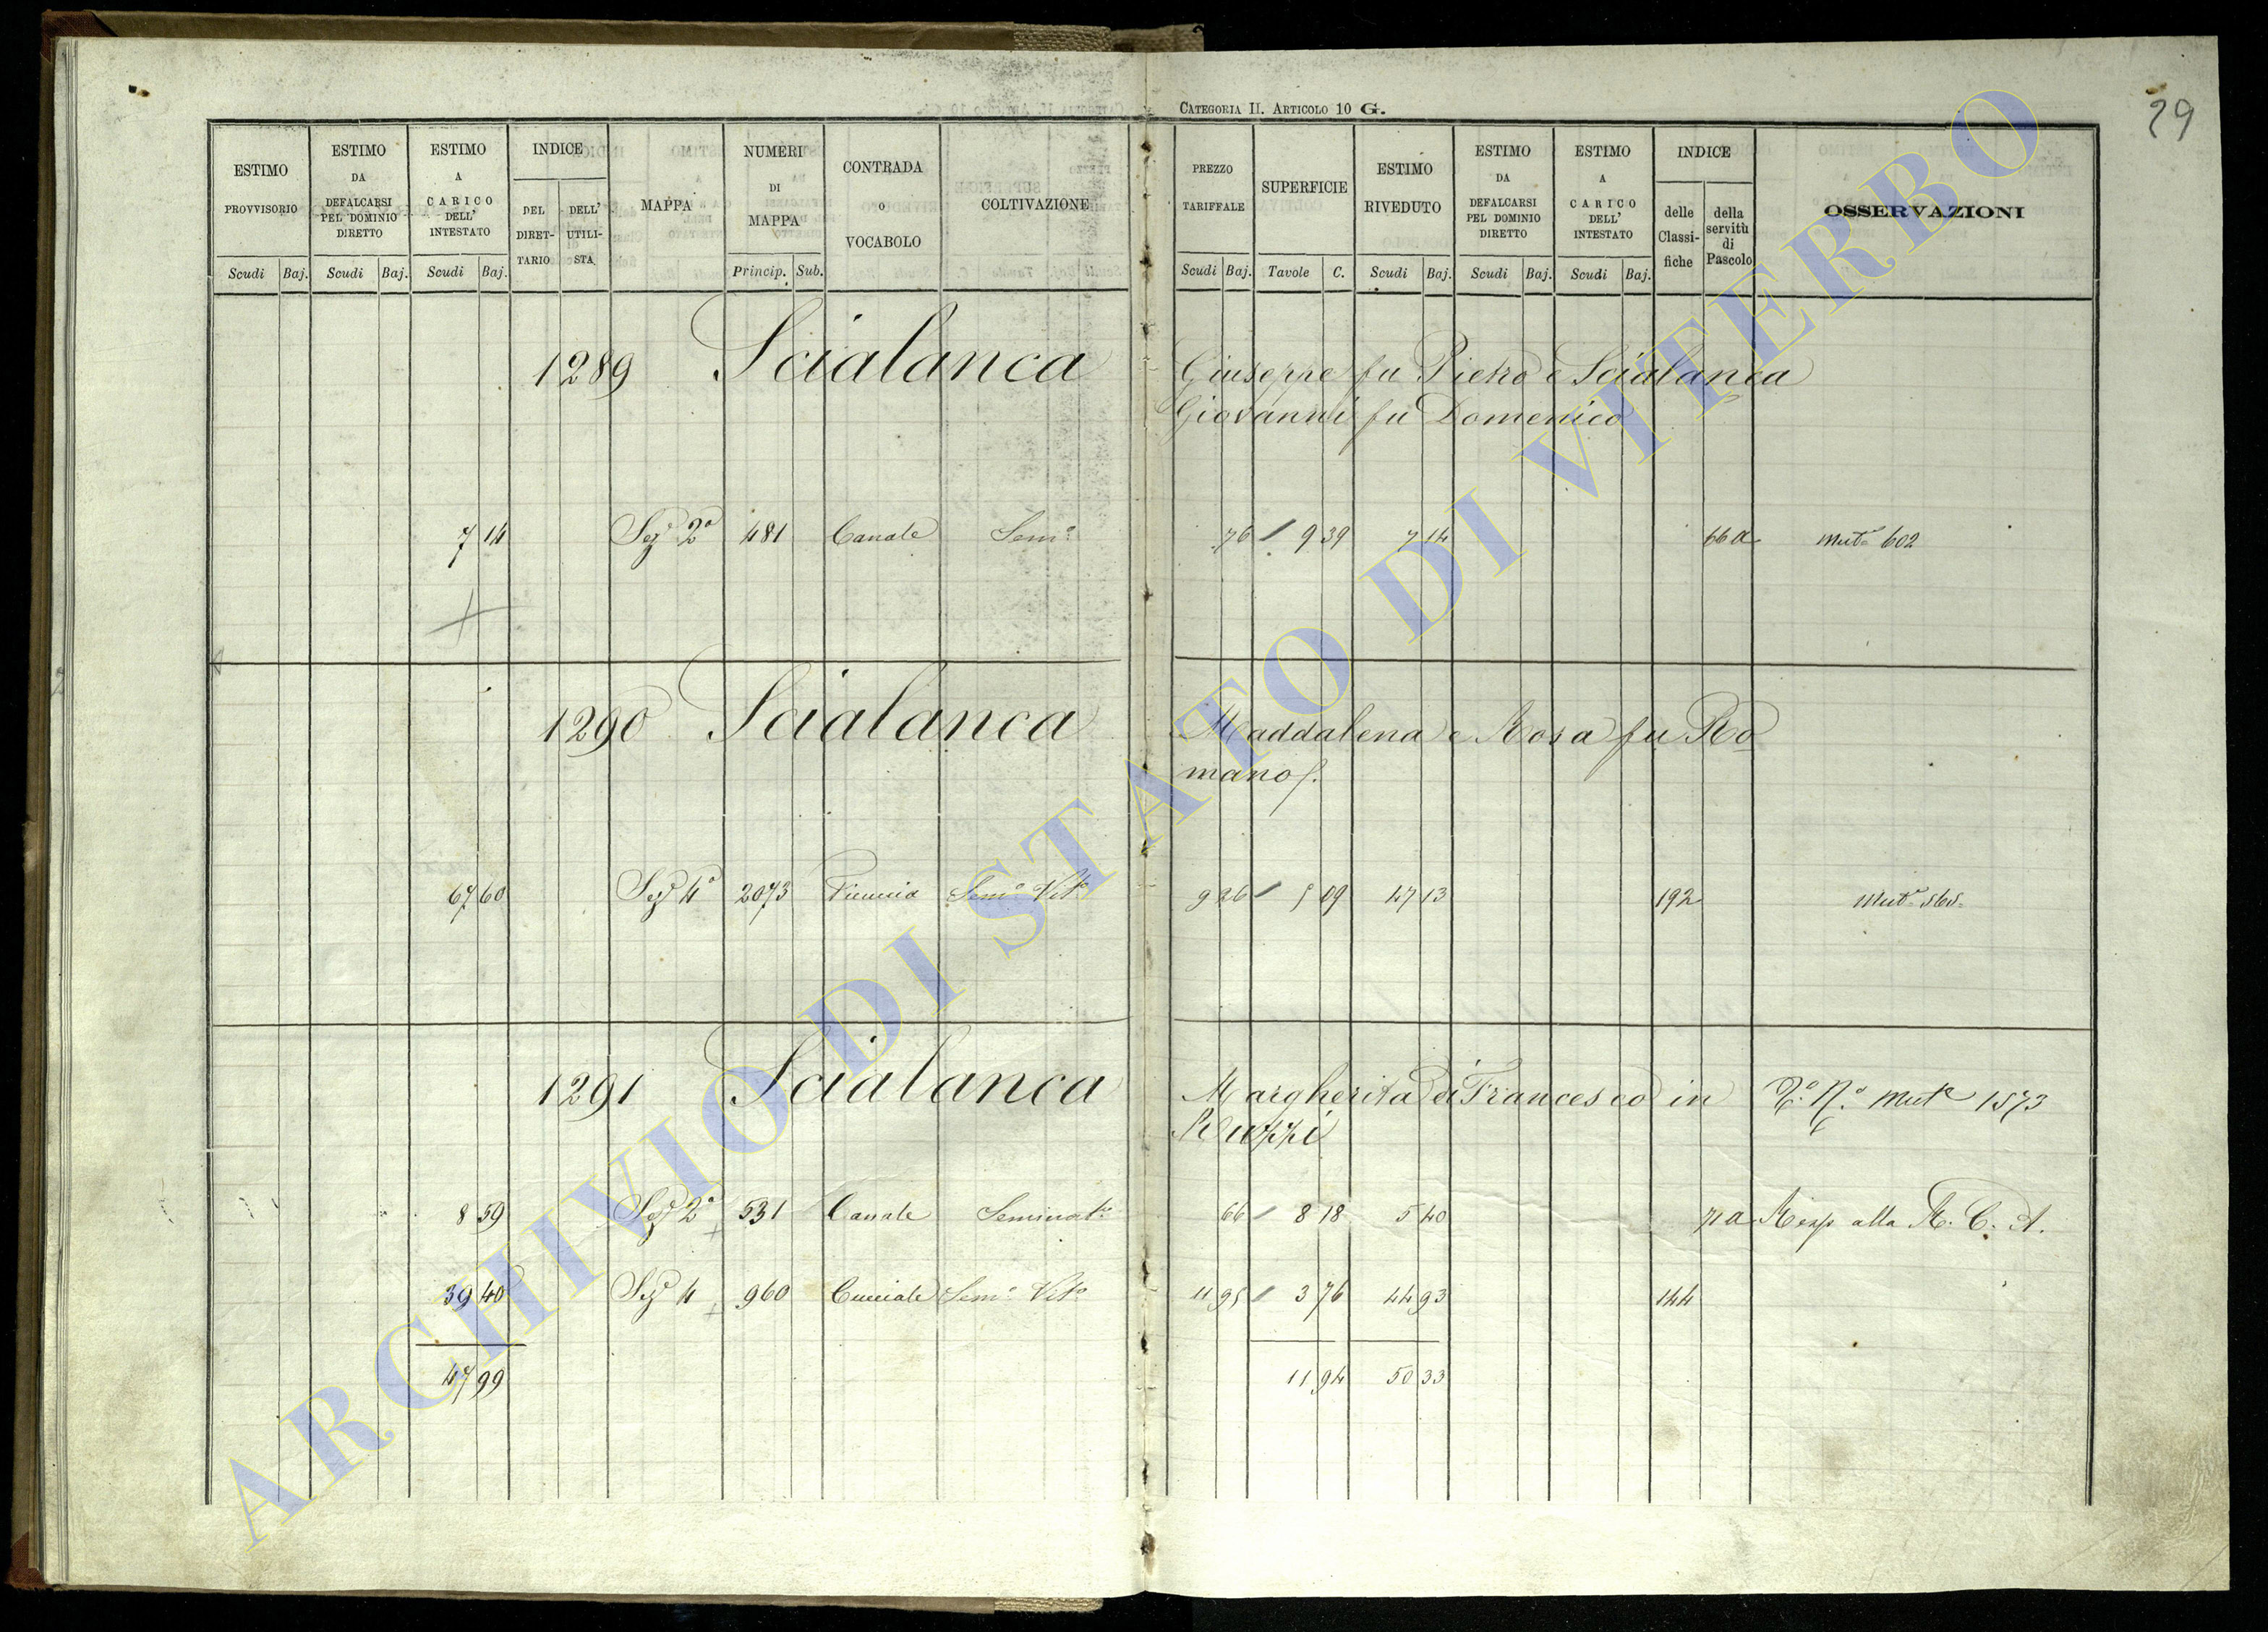 CATEGORIA II. ARTICOLO 10 G.
29
ESTIMO PROVVISORIO Scudi Baj.
ESTIMO DA DEFALCARSI PEL DOMINIO DIRETTO Scudi Baj.
ESTIMO A CARICO DELL' INTESTATO Scudi Baj.
INDICE DEL DIRET-TARIO DELL' UTILI-STA
MAPPA
NUMERI DI MAPPA Princip. Sub.
CONTRADA O VOCABOLO
COLTIVAZIONE
PREZZO TARIFFALE Scudi Baj.
SUPERFICIE Tavole C.
ESTIMO RIVEDUTO Scudi Baj.
ESTIMO DA DEFALCARSI PEL DOMINIO DIRETTO Scudi Baj.
ESTIMO A CARICO DELL' INTESTATO Scudi Baj.
INDICE delle Classi-fiche della servitù di Pascolo
OSSERVAZIONI
1289 Scialanca Giuseppe fu Pietro e Scialanca
Giovanni fu Domenico
7 14 Sez 2a 481 Canale Semo 76 9 39 7 14 66 a Muta 602
1290 Scialanca Maddalena e Rosa fu Ro
mano
67 60 Sez 4a 2073 Semo Vito 9 26 5 09 47 13 192 Muta 565
1291 Scialanca Margherita di Francesco in
Ruzzi
Muta 1573
8 59 Sez 2a 531 Canale Seminato 66 8 18 5 40 71 a Resp alla R. C. A.
39 40 Sez 4 960 Cunicale Semo Vito 11 95 3 76 44 93 144
47 99 11 94 50 33
ARCHIVIO DI STATO DI VITERBO